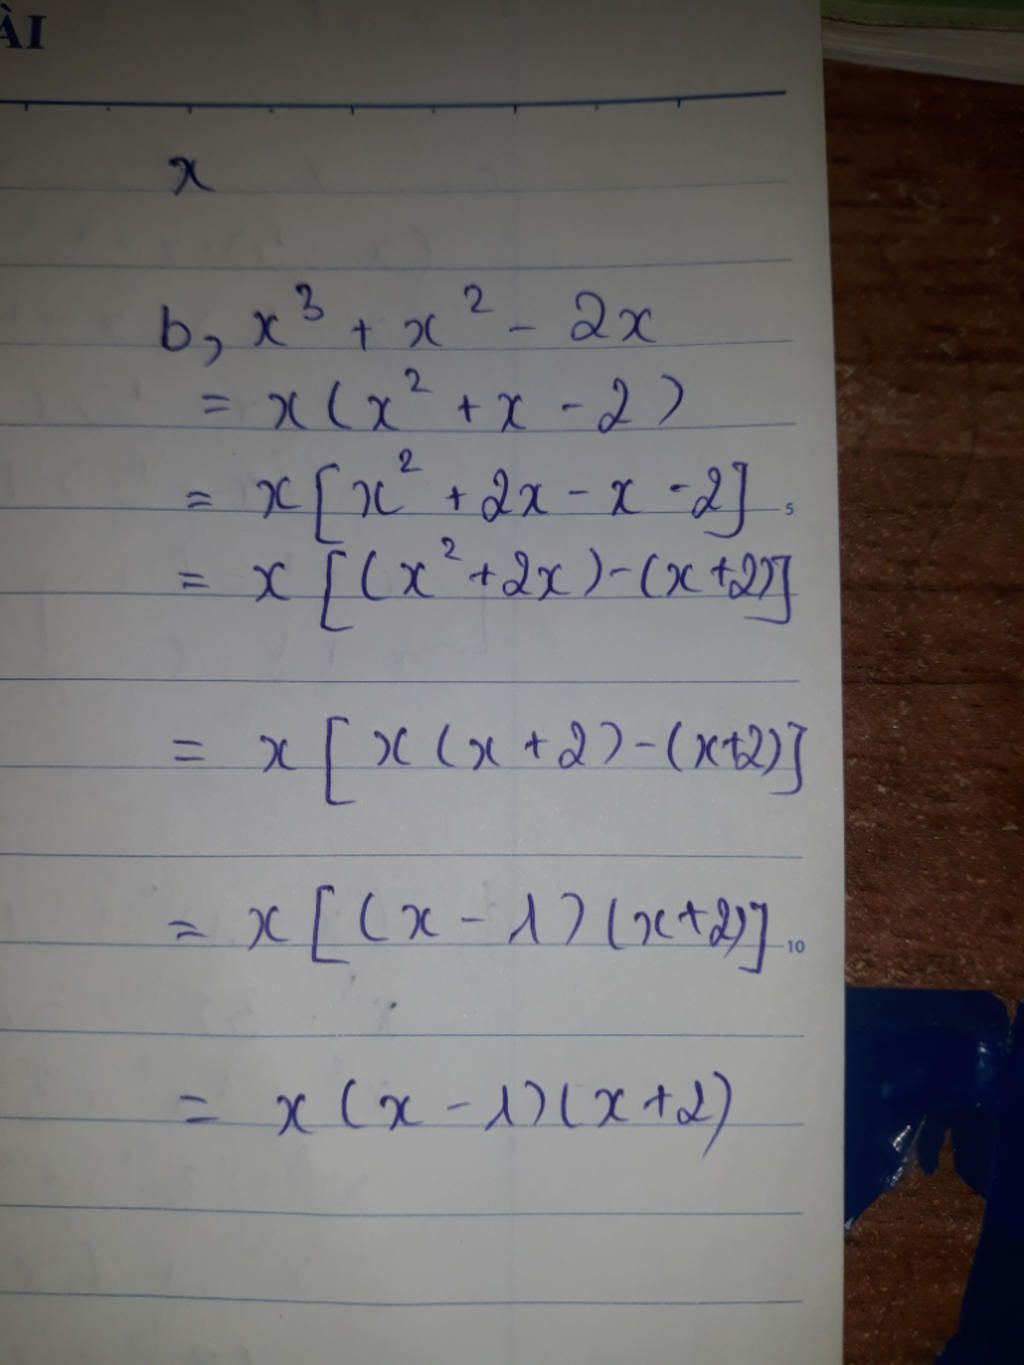 ÀI
x
b, x³ + x² - 2x
= x(x² + x - 2)
= x[x² + 2x - x - 2]
5
= x[(x² + 2x) - (x + 2)]
= x[x(x + 2) - (x + 2)]
= x[(x - 1)(x + 2)]
10
= x(x - 1)(x + 2)